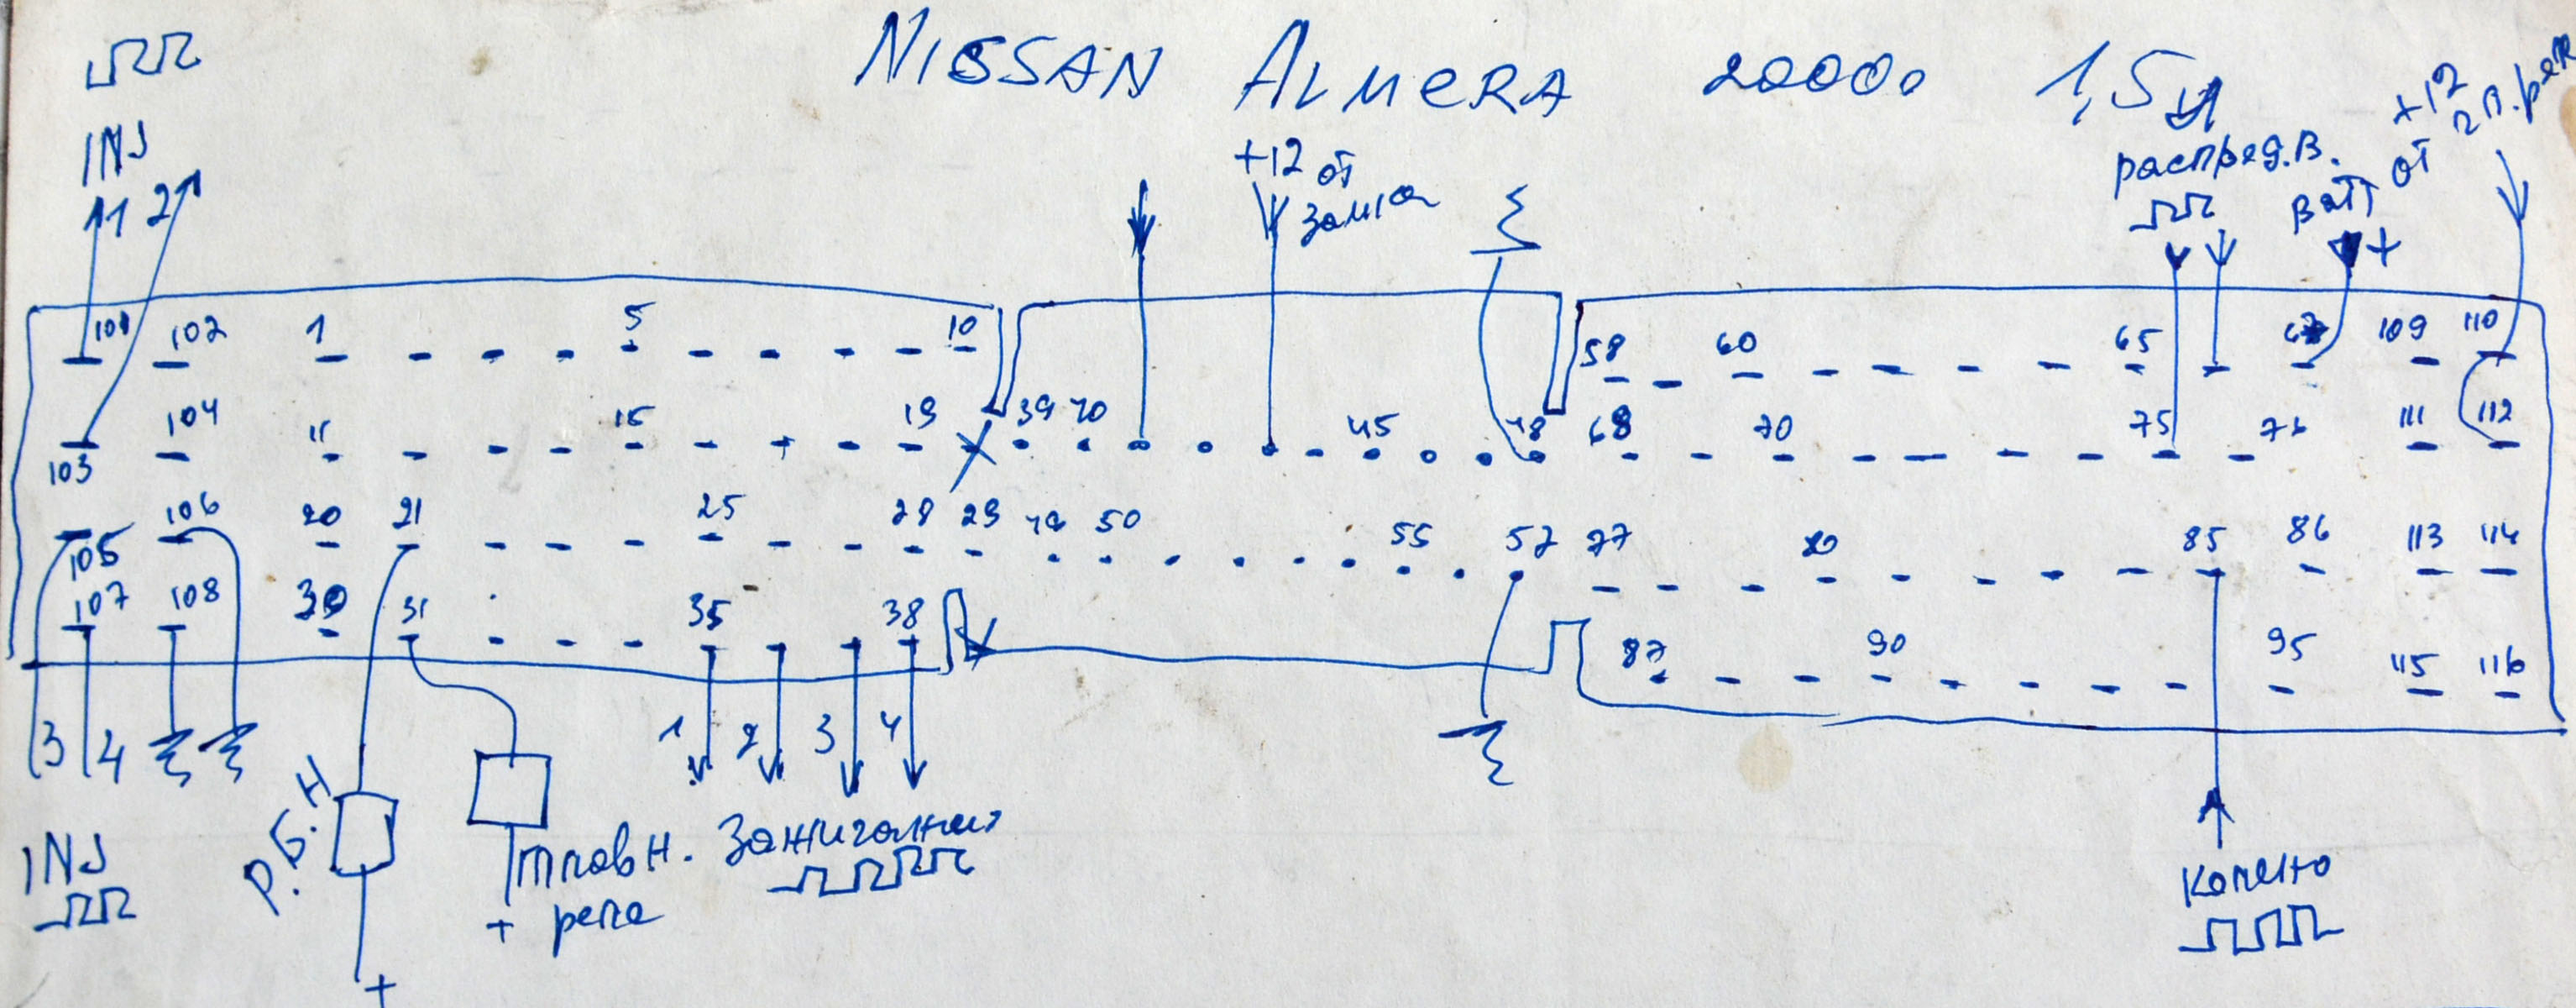 NISSAN ALMERA 2000г 1,5л
INJ
1 2
+12 от
замка
распред.в.
Ватт
+
+12
от гл.рел
101 102 1 5 10 58 60 65 67 109 110
103 104 11 15 19 39 40 45 48 68 70 75 76 111 112
105 106 20 21 25 28 29 49 50 55 57 77 80 85 86 113 114
107 108 30 31 35 38 87 90 95 115 116
3 4 1 2 3 4
INJ
Р.Б.Н
+
главн.
+ реле
Зажигание
колено